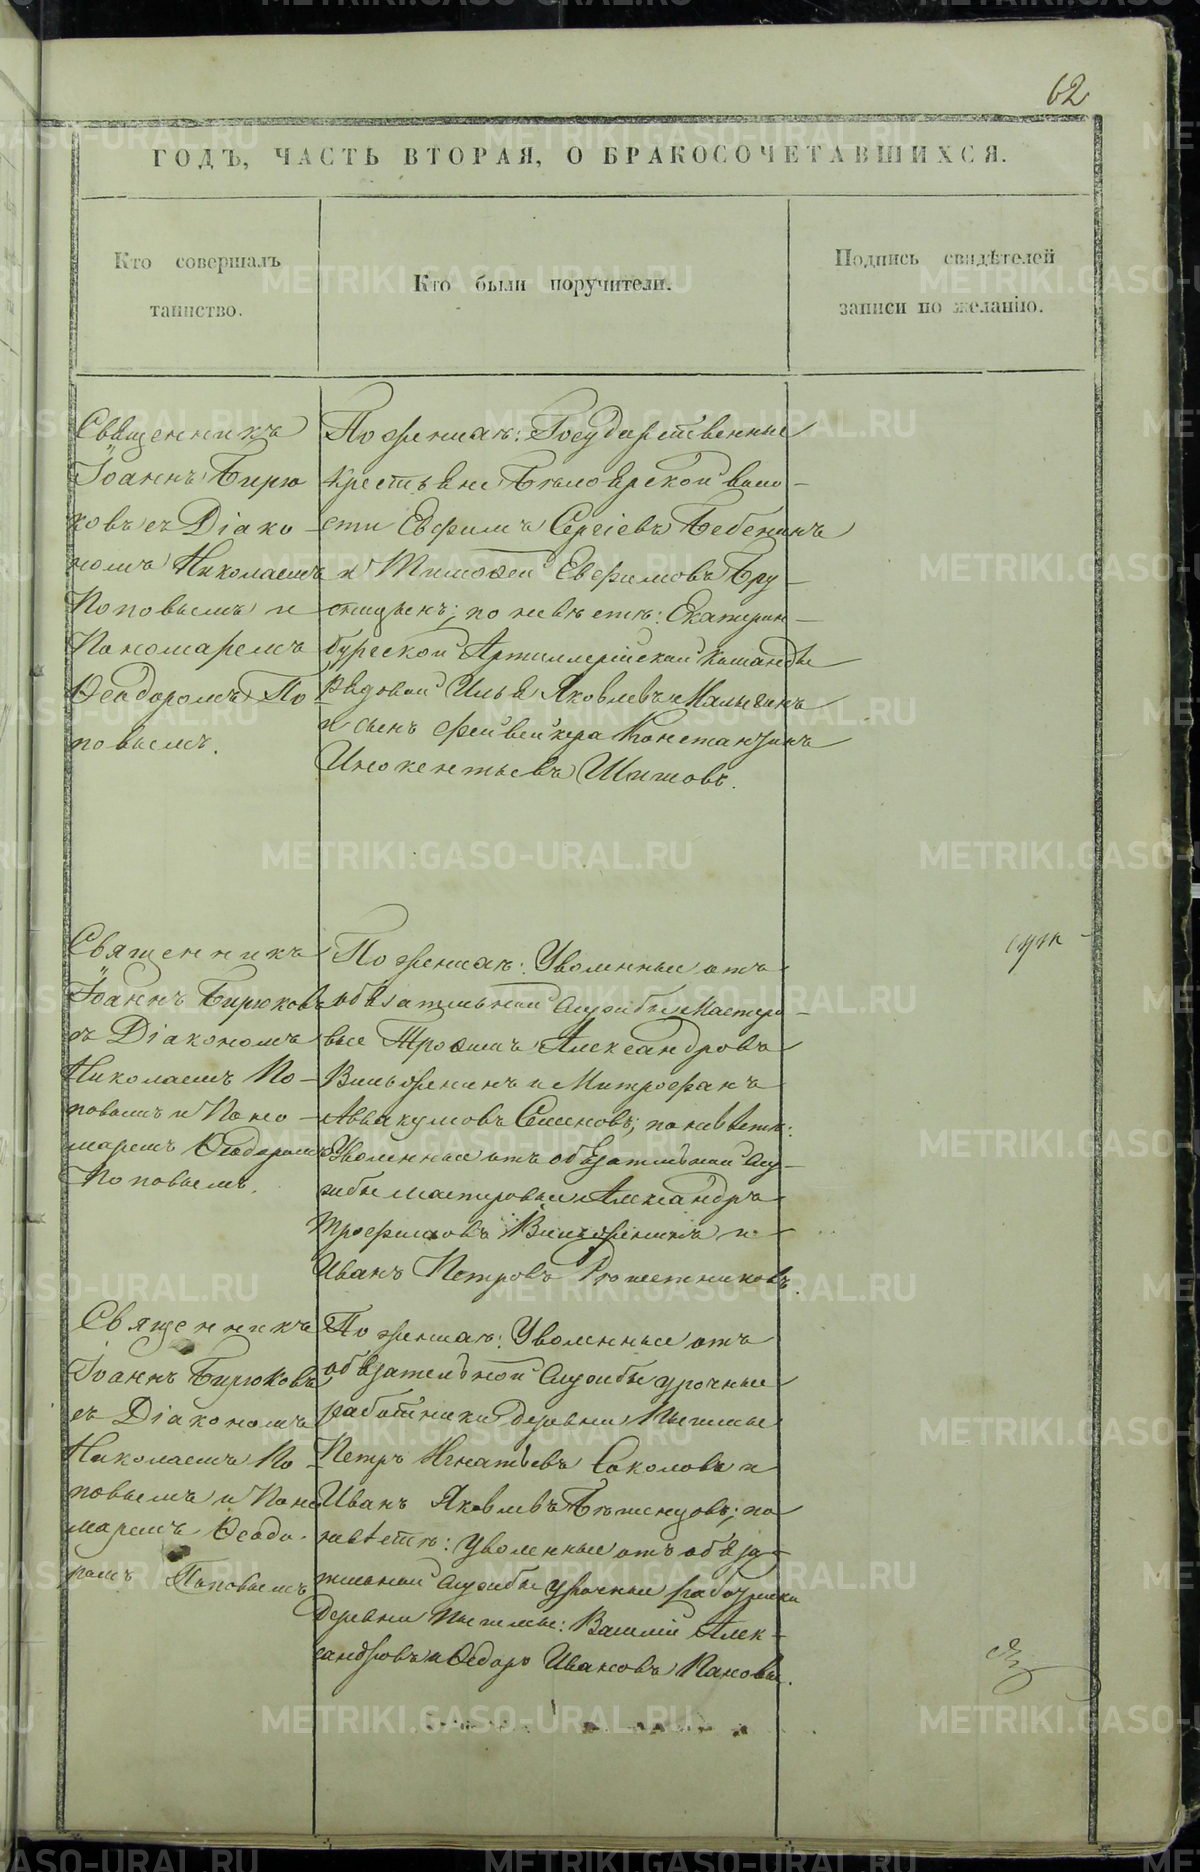 62
ГОДЪ, ЧАСТЬ ВТОРАЯ, О БРАКОСОЧЕТАВШИХСЯ.
Кто совершалъ
таинство.
Кто были поручители.
Подпись свидѣтелей
записи по желанію.
Священникъ
Іоаннъ Бирю
ковъ съ Діако
номъ Николаемъ
Поповымъ и
Пономаремъ
Ѳеодоромъ По
повымъ.
По женихѣ: Государственные
крестьяне Бѣлоярской воло-
сти Евфимъ Сергіевъ Бебенинъ
и Тимоѳей Евфимовъ Бру-
сницынъ; по невѣстѣ: Екатерин-
бургской Артиллерійской команды
Рядовой Илья Яковлевъ Малыгинъ
и сынъ фейвейкера Константинъ
Инокентьевъ Шишовъ.
Священникъ
Іоаннъ Бирюковъ
съ Діакономъ
Николаемъ По-
повымъ и Поно-
маремъ Ѳеодоромъ
Поповымъ.
По женихѣ: Уволенные отъ
обязательной службы мастеро-
вые Трофимъ Александровъ
и Митрофанъ
Аввакумовъ Семеновъ; по невѣстѣ:
Уволенные отъ обязательной слу-
жбы мастеровые Александръ
Трофимовъ и
Иванъ Петровъ Рѣшетниковъ.
Священникъ
Іоаннъ Бирюковъ
съ Діакономъ
Николаемъ По-
повымъ и Поно
маремъ Ѳеодо-
ромъ Поповымъ
По женихѣ: Уволенные отъ
обязательной службы урочные
работники деревни Пышмы
Петръ Игнатьевъ Соколовъ и
Иванъ Яковлевъ по
невѣстѣ: Уволенные отъ обяза-
тельной службы урочные работники
деревни Пышмы: Василій Алек-
сандровъ и Ѳедоръ Ивановъ Пановы.
METRIKI.GASO-URAL.RU